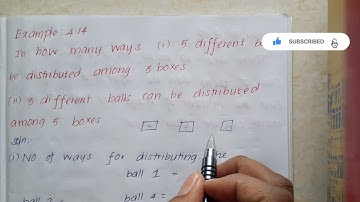 Example 4.14
In how many ways (i) 5 different b
be distributed among 5 boxes
(ii) 5 different balls can be distributed
among 5 boxes
Soln:
(i) NO of ways for distributing the
ball 1 =
ball 4 =
SUBSCRIBED